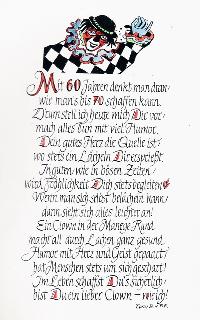 Mit 60 Jahren denkt man dran
wie man's bis 70 schaffen kann.
Drum stell ich heute mich Dir vor
mach alles Dein mit viel Humor.
Dein gutes Herz die Quelle ist
wo stets ein Lächeln Dir
In guten wie in bösen Zeiten
wird Fröhlichkeit Dich stets begleiten
Wenn man sich selbst belächeln kann
dann sieht sich alles leichter an!
Ein Clown in der Manege Rund
macht all durch Lachen ganz gesund.
Humor mit Herz und Geist gepaart
hat Menschen stets um sich geschart!
Im Leben schaffst Du's sicherlich
bist Du ein lieber Clown – wie ich!